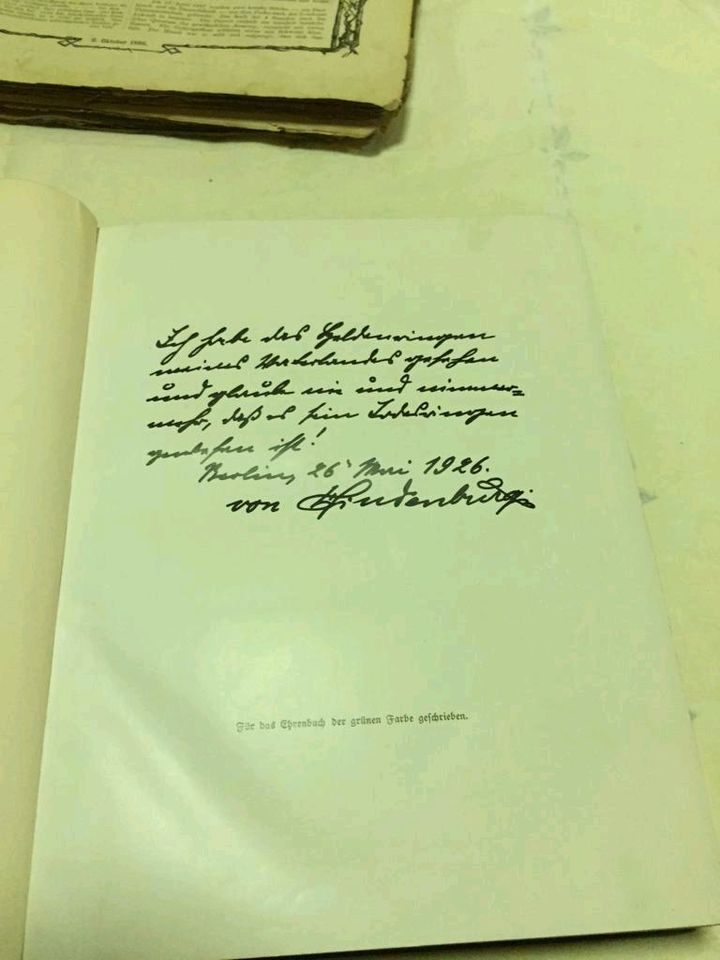 2. Oktober 1892.
Ich habe das Heldenringen
meines Vaterlandes gesehen
und glaube nie und nimmer=
mehr, daß es sein Todesringen
gewesen ist!
Berlin, 26 Mai 1926.
von Hindenburg.
Für das Ehrenbuch der grünen Farbe geschrieben.